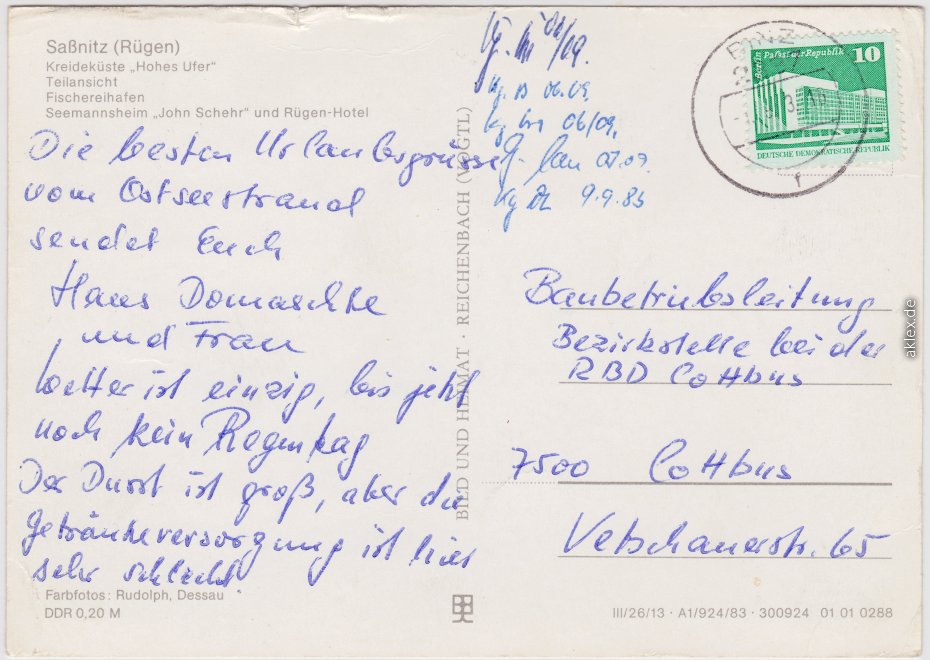 Saßnitz (Rügen)
Kreideküste „Hohes Ufer“
Teilansicht
Fischereihafen
Seemannsheim „John Schehr“ und Rügen-Hotel
Die besten Urlaubsgrüsse
vom Ostseestrand
sendet Euch
Hans Domaschke
und Frau
Wetter ist einzig, bis jetzt
noch kein Regentag
Der Durst ist groß, aber die
Getränkeversorgung ist hier
sehr schlecht.
Farbfotos: Rudolph, Dessau
DDR 0,20 M
BILD UND HEIMAT · REICHENBACH (VOGTL)
06.09.
06/09.
07.09.
9.9.83
BINZ
Berlin Palast der Republik 10
DEUTSCHE DEMOKRATISCHE REPUBLIK
Baubetriebsleitung
Bezirkstelle bei der
RBD Cottbus
7500 Cottbus
Vetschauerstr. 65
III/26/13 · A1/924/83 · 300924 01 01 0288
aklex.de